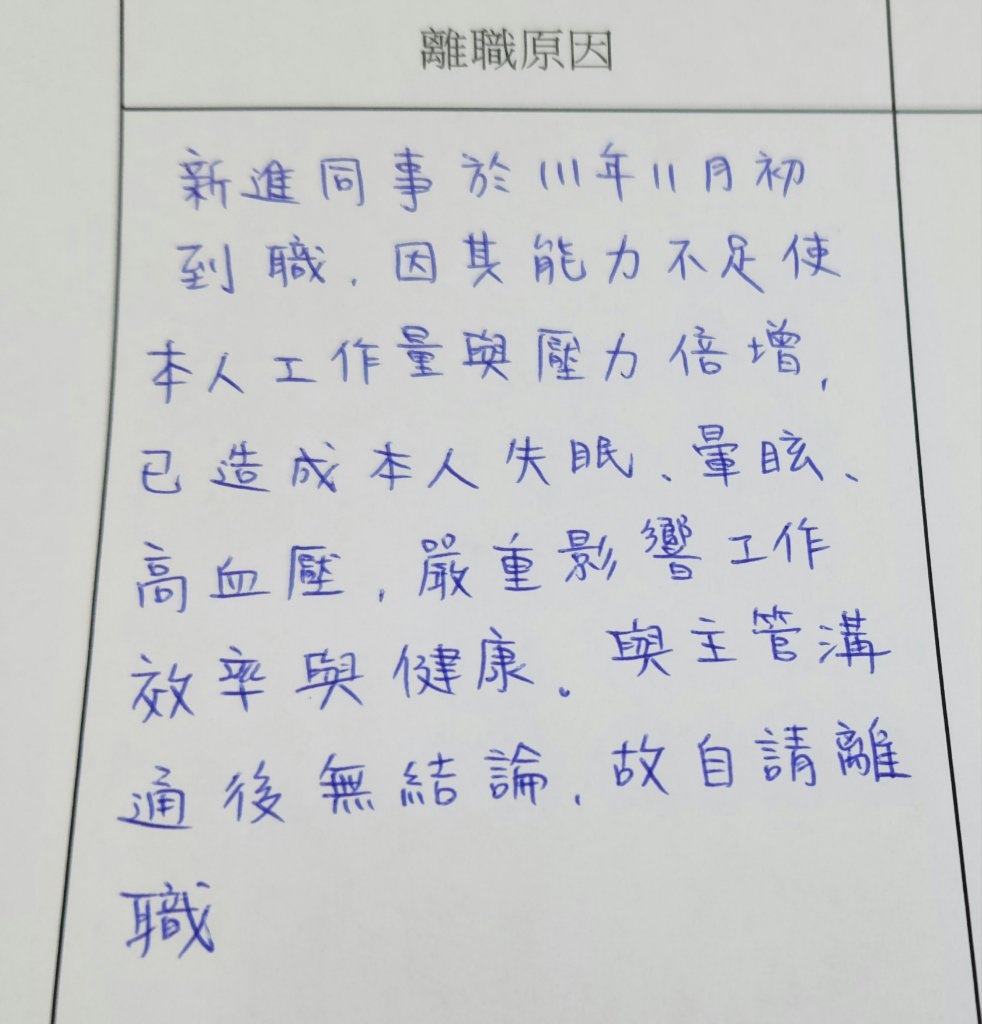 離職原因
新進同事於111年11月初
到職,因其能力不足使
本人工作量與壓力倍增,
已造成本人失眠、暈眩、
高血壓,嚴重影響工作
效率與健康。與主管溝
通後無結論,故自請離
職